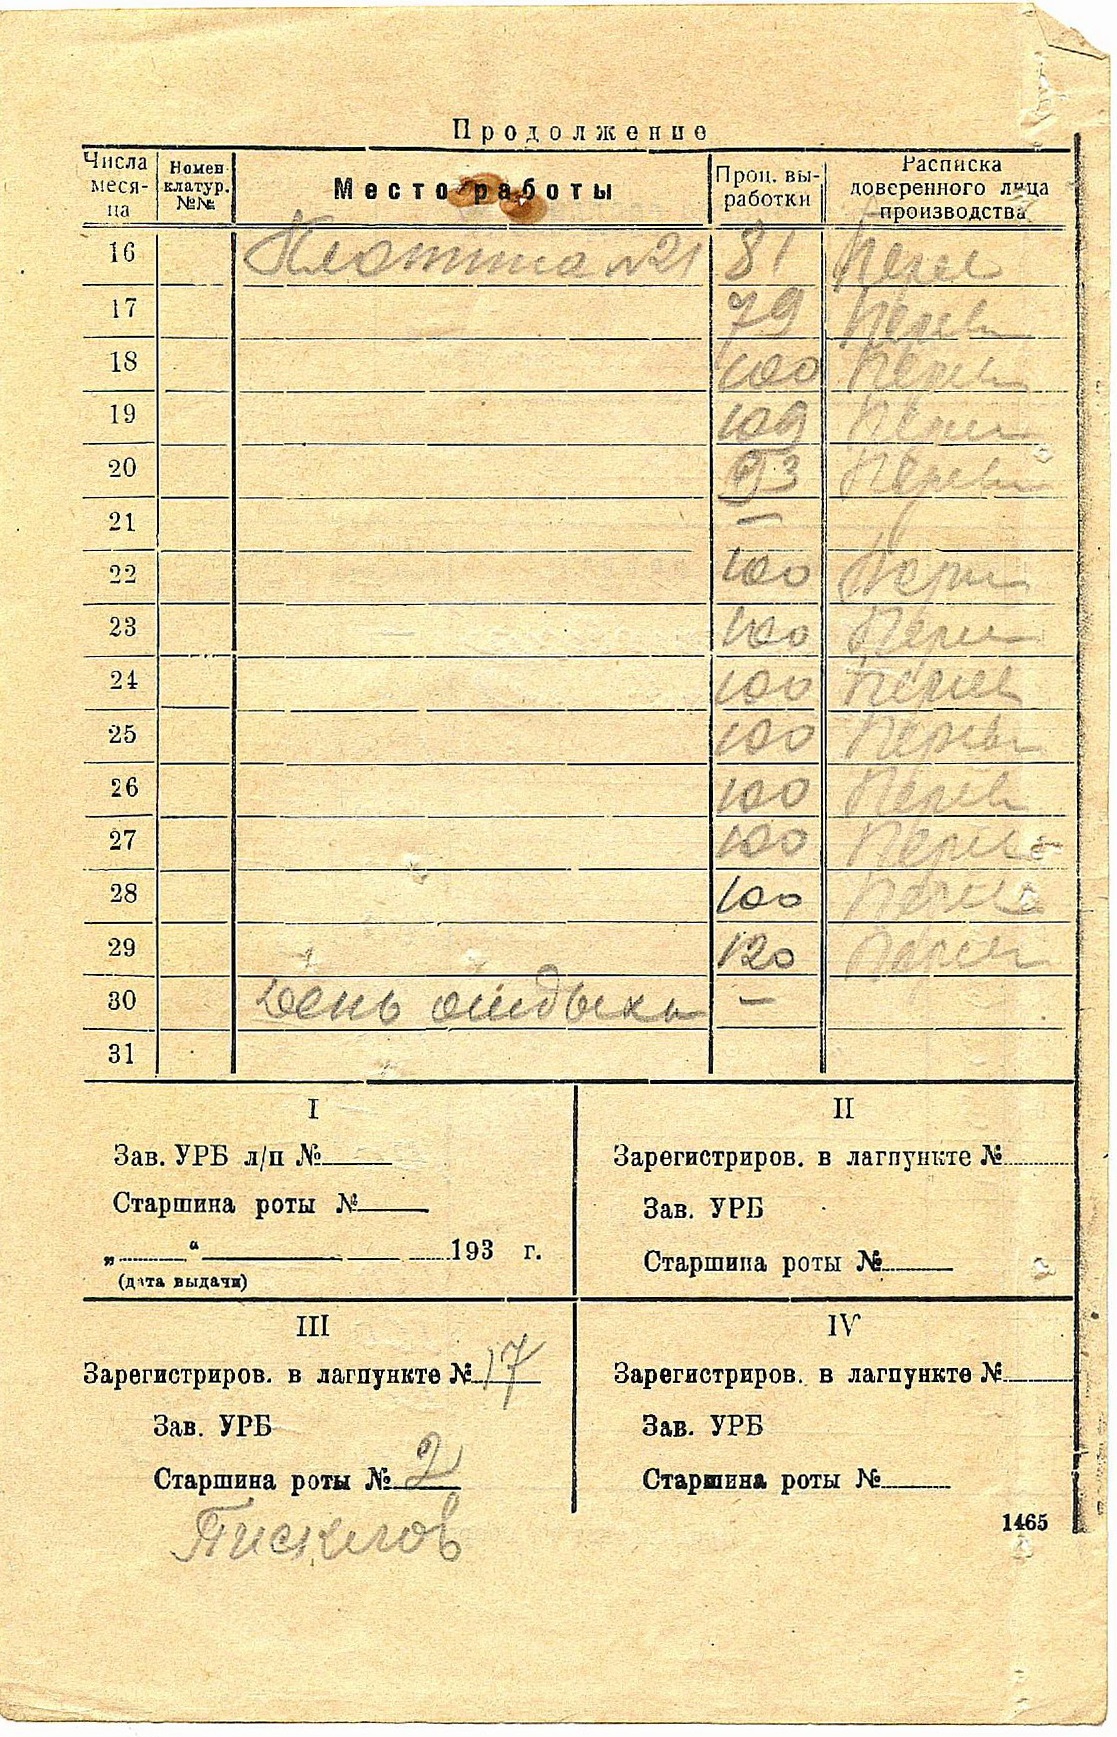 Продолжение
Числа меся-ца Номен клатур. №№ Место работы Проц. вы-работки Расписка доверенного лица производства
16 Плотина №21 81
17 79
18 100
19 109
20 93
21 —
22 100
23 100
24 100
25 100
26 100
27 100
28 100
29 120
30 День отдыха —
31
I
Зав. УРБ л/п №
Старшина роты №
„ “ 193 г.
(дата выдачи)
II
Зарегистриров. в лагпункте №
Зав. УРБ
Старшина роты №
III
Зарегистриров. в лагпункте № 17
Зав. УРБ
Старшина роты № 2
IV
Зарегистриров. в лагпункте №
Зав. УРБ
Старшина роты №
1465